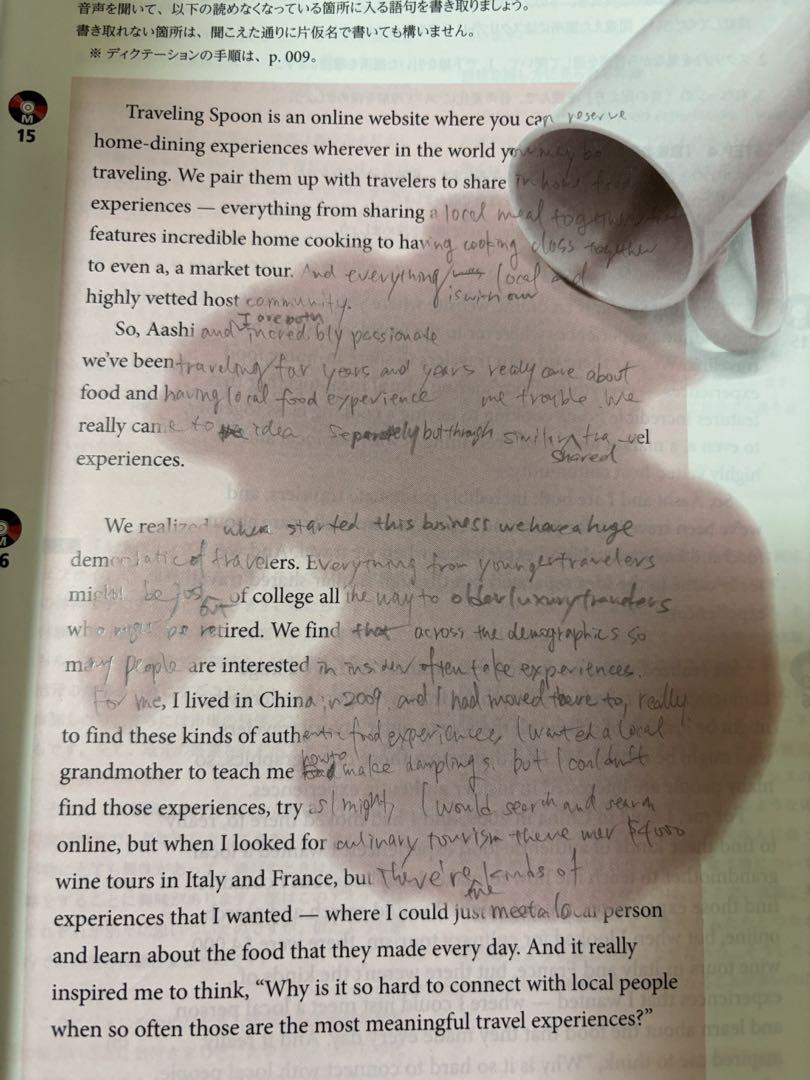 音声を聞いて、以下の読めなくなっている箇所に入る語句を書き取りましょう。
書き取れない箇所は、聞こえた通りに片仮名で書いても構いません。
※ ディクテーションの手順は、p. 009。
M
15
Traveling Spoon is an online website where you can reserve
home-dining experiences wherever in the world you may be
traveling. We pair them up with travelers to share in home food
experiences — everything from sharing a local meal together that
features incredible home cooking to having cooking class together
to even a, a market tour. And everything is with our local and
highly vetted host community.
So, Aashi and I are both incredibly passionate
we've been traveling for years and years really care about
food and having local food experience me trouble. We
really came to idea separately but through similar shared travel
experiences.
M
6
We realized when started this business we have a huge
demographic of travelers. Everything from younger travelers
might be just out of college all the way to older luxury travelers
who might be retired. We find that across the demographics so
many people are interested in insider often take experiences.
For me, I lived in China in 2009, and I had moved there to, really
to find these kinds of authentic food experiences, I wanted a local
grandmother to teach me how to make dumplings, but I couldn't
find those experiences, try as I might, I would search and search
online, but when I looked for culinary tourism there were $4000
wine tours in Italy and France, but There're the kinds of
experiences that I wanted — where I could just meet a local person
and learn about the food that they made every day. And it really
inspired me to think, “Why is it so hard to connect with local people
when so often those are the most meaningful travel experiences?”